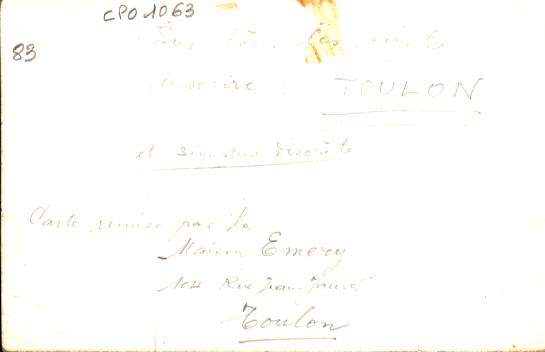 CPO 1063
83
Sur
inscrire TOULON
et signature discrète
Carte remise par la
Maison Emery
104 Rue Jean Jaurès
Toulon